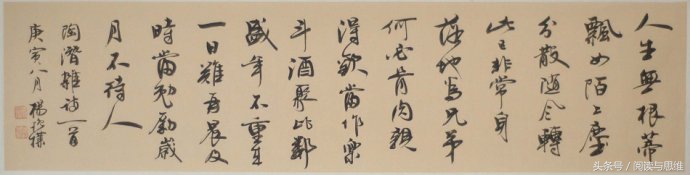 人生無根蒂
飄如陌上塵
分散隨風轉
此已非常身
落地為兄弟
何必骨肉親
得歡當作樂
斗酒聚比鄰
盛年不重來
一日難再晨及
時當勉勵歲
月不待人
陶潛雜詩一首
庚寅八月 楊
头条号 / 阅读与思维